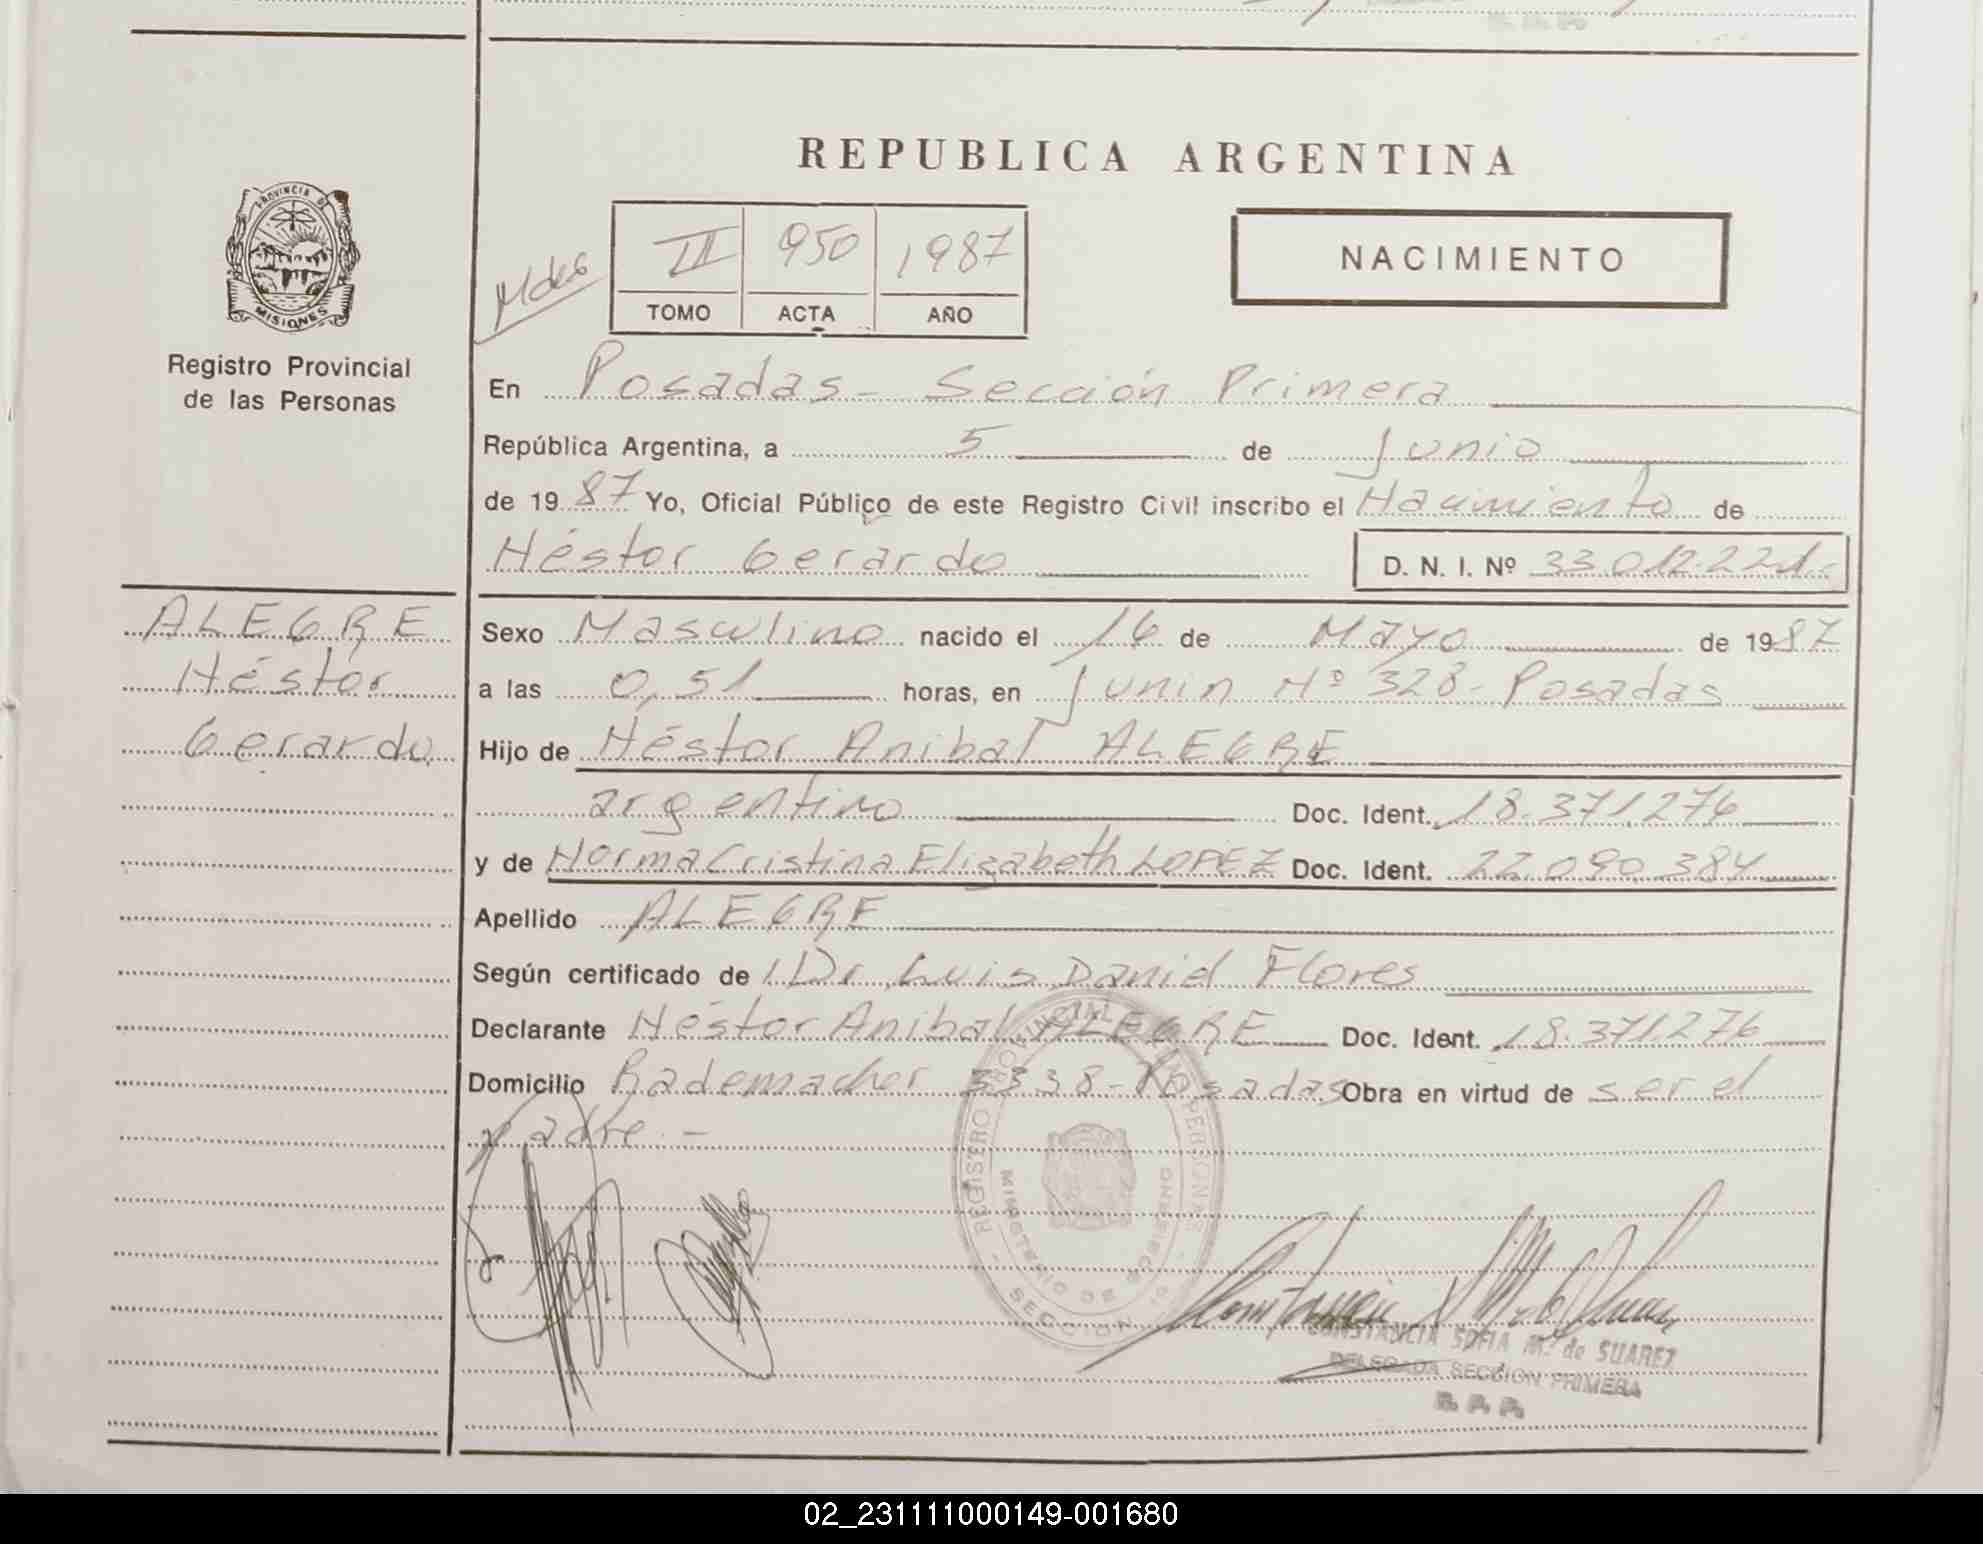 REPUBLICA ARGENTINA
PROVINCIA DE
MISIONES
Registro Provincial
de las Personas
III 950 1987
TOMO ACTA AÑO
NACIMIENTO
En Posadas - Sección Primera
República Argentina, a 5 de Junio
de 1987 Yo, Oficial Público de este Registro Civil inscribo el Nacimiento de
Héstor Gerardo D. N. I. Nº 33.012.221.-
ALEGRE
Héstor
Gerardo
Sexo Masculino nacido el 16 de Mayo de 1987
a las 0,51 horas, en Junin Nº 328 - Posadas
Hijo de Héstor Anibal ALEGRE
argentino Doc. Ident. 18.371.276
y de Norma Cristina Elizabeth LOPEZ Doc. Ident. 22.090.384
Apellido ALEGRE
Según certificado de Dr. Luis Daniel Flores
Declarante Héstor Anibal ALEGRE Doc. Ident. 18.371.276
Domicilio Rademacher 3338 - Posadas Obra en virtud de ser el
padre.-
REGISTRO PROVINCIAL PERSONAS
MINISTERIO DE GOBIERNO
SECCION 1a
CONSTANCIA SOFIA M. de SUAREZ
DELEGADA SECCION PRIMERA
R. P. P.
02_231111000149-001680